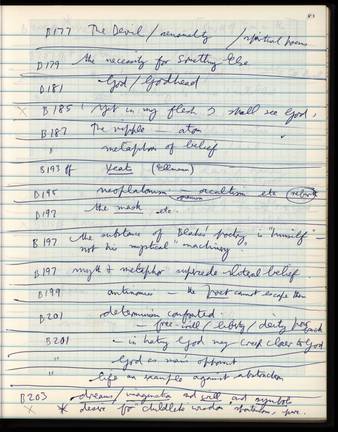 B177 The Devil / personality / spiritual forms
B179 the necessity for Something Else
D181 God / Godhead
x B185 'Yet in my flesh I shall see God'
B187 The nipple — atom
" metaphor of belief
B193 ff Yeats (Ellmann)
D195 neoplatonism — occultism etc
D197 the mask etc.
B197 the substance of Blake's poetry is "himself" —
not his mystical "machinery"
B197 myth & metaphor supersede literal belief
B199 antinomies — the poet cannot escape them
B201 determinism confronted:
— free-will / liberty / deity
B201 — in hating God may creep closer to God
" God as main opponent
" life an example against abstraction
B203 dreams / magnetic and will and symbols
x * desire for childlike wisdom